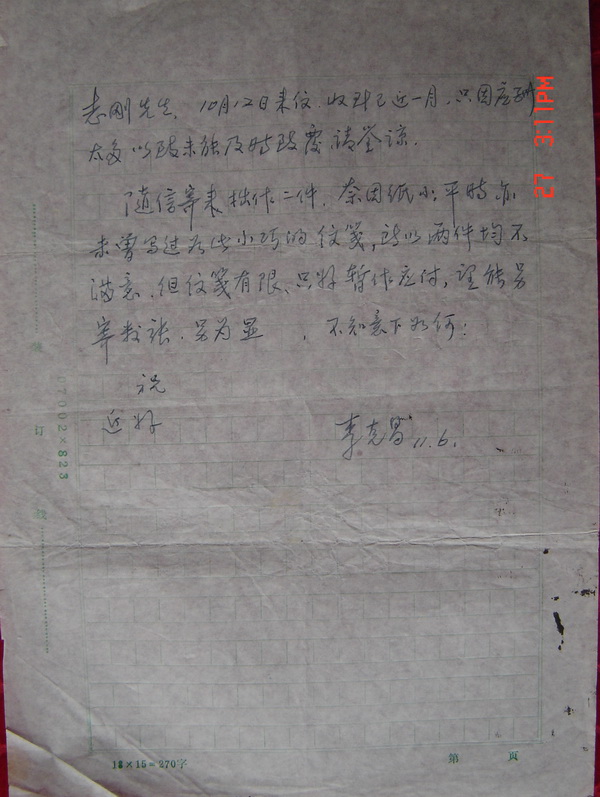 志刚先生、10月12日来信.收到已近一月,只因应酬
太多以致未能及时致覆,请鉴谅.
随信寄来拙作二件.奈因纸小,平时亦
未曾写过如此小巧的信笺,所以两件均不
满意.但信笺有限、只好暂作应付,望能另
寄数张.另为显 ,不知意下如何:
祝
近好
李克昌 11.6.
27 3:11PM
订
002×823
18×15=270字
第 页